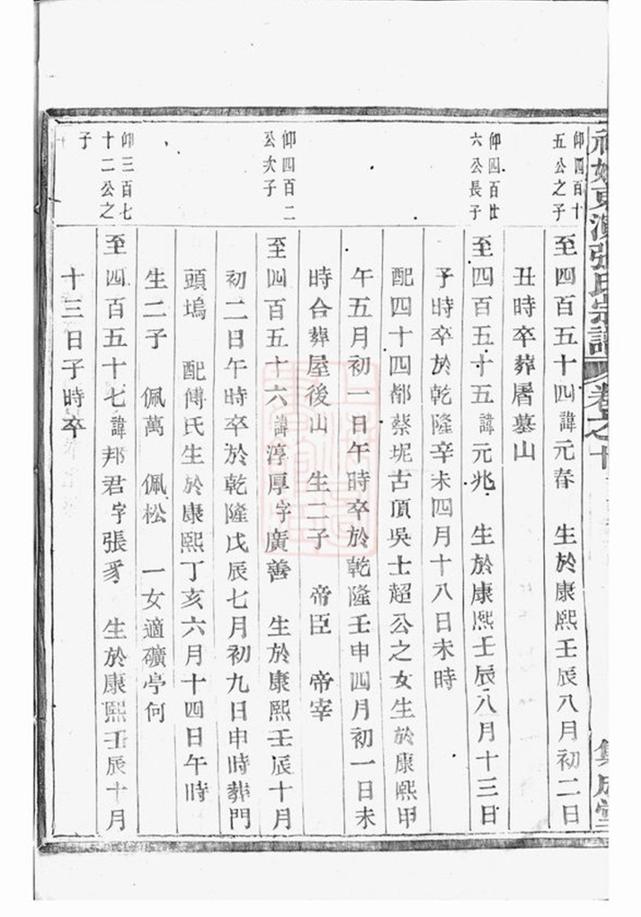 東溪張氏宗譜 卷之十
集成堂
仰四百十
五公之子
至四百五十四諱元春 生於康熙壬辰八月初二日
丑時卒葬屠墓山
仰四百廿
六公長子
至四百五十五諱元兆 生於康熙壬辰八月十三日
子時卒於乾隆辛未四月十八日未時
配四十四都蔡坭古頂吳士超公之女生於康熙甲
午五月初一日午時卒於乾隆壬申四月初一日未
時合葬屋後山 生二子 帝臣 帝宰
仰四百二
公次子
至四百五十六諱淳厚字廣善 生於康熙壬辰十月
初二日午時卒於乾隆戊辰七月初九日申時葬門
頭塢 配傅氏生於康熙丁亥六月十四日午時
生二子 佩萬 佩松 一女適礦亭何
仰三百七
十二公之
子
至四百五十七諱邦君字張 生於康熙壬辰十月
十三日子時卒